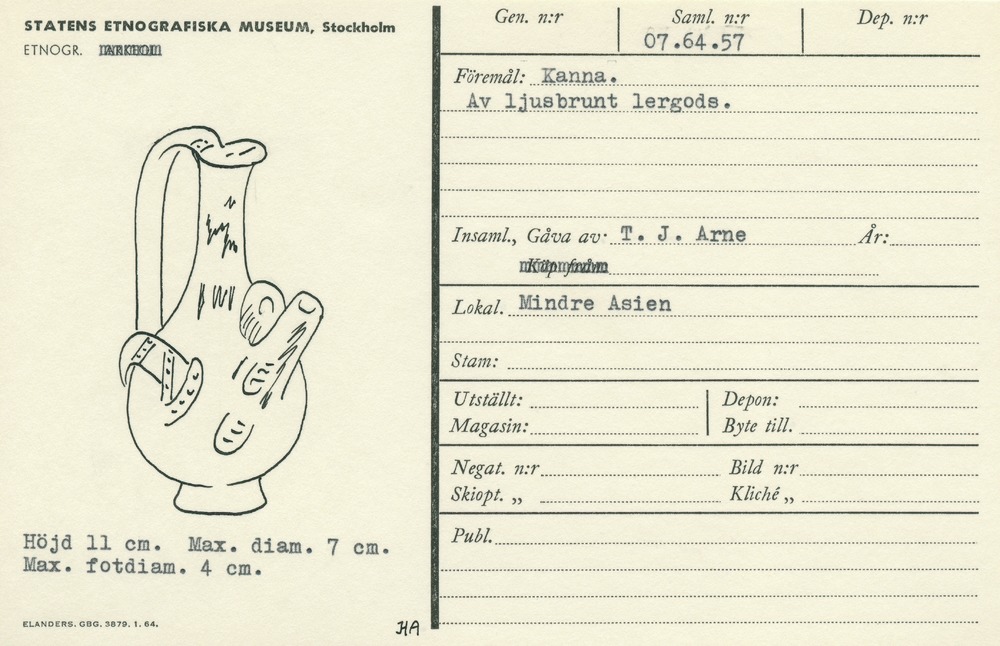 STATENS ETNOGRAFISKA MUSEUM, Stockholm
ETNOGR.
Höjd 11 cm. Max. diam. 7 cm.
Max. fotdiam. 4 cm.
ELANDERS. GBG. 3879. 1. 64.
HA
Gen. n:r Saml. n:r Dep. n:r
07.64.57
Föremål: Kanna.
Av ljusbrunt lergods.
Insaml., Gåva av: T. J. Arne År:
Köp från
Lokal. Mindre Asien
Stam:
Utställt: Depon:
Magasin: Byte till.
Negat. n:r Bild n:r
Skiopt. „ Kliché „
Publ.